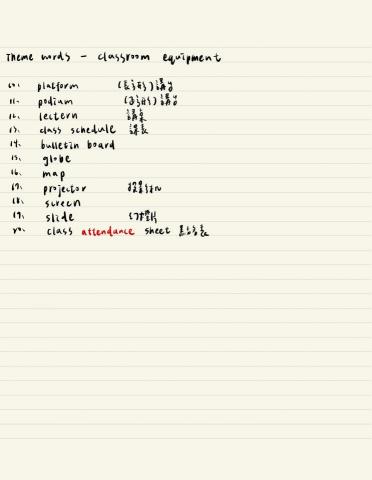 Theme words - classroom equipment
10. platform (長方形)講台
11. podium (正方形)講台
12. lectern 講桌
13. class schedule 課表
14. bulletin board
15. globe
16. map
17. projector 投影機
18. screen
19. slide 幻燈片
20. class attendance sheet 點名表